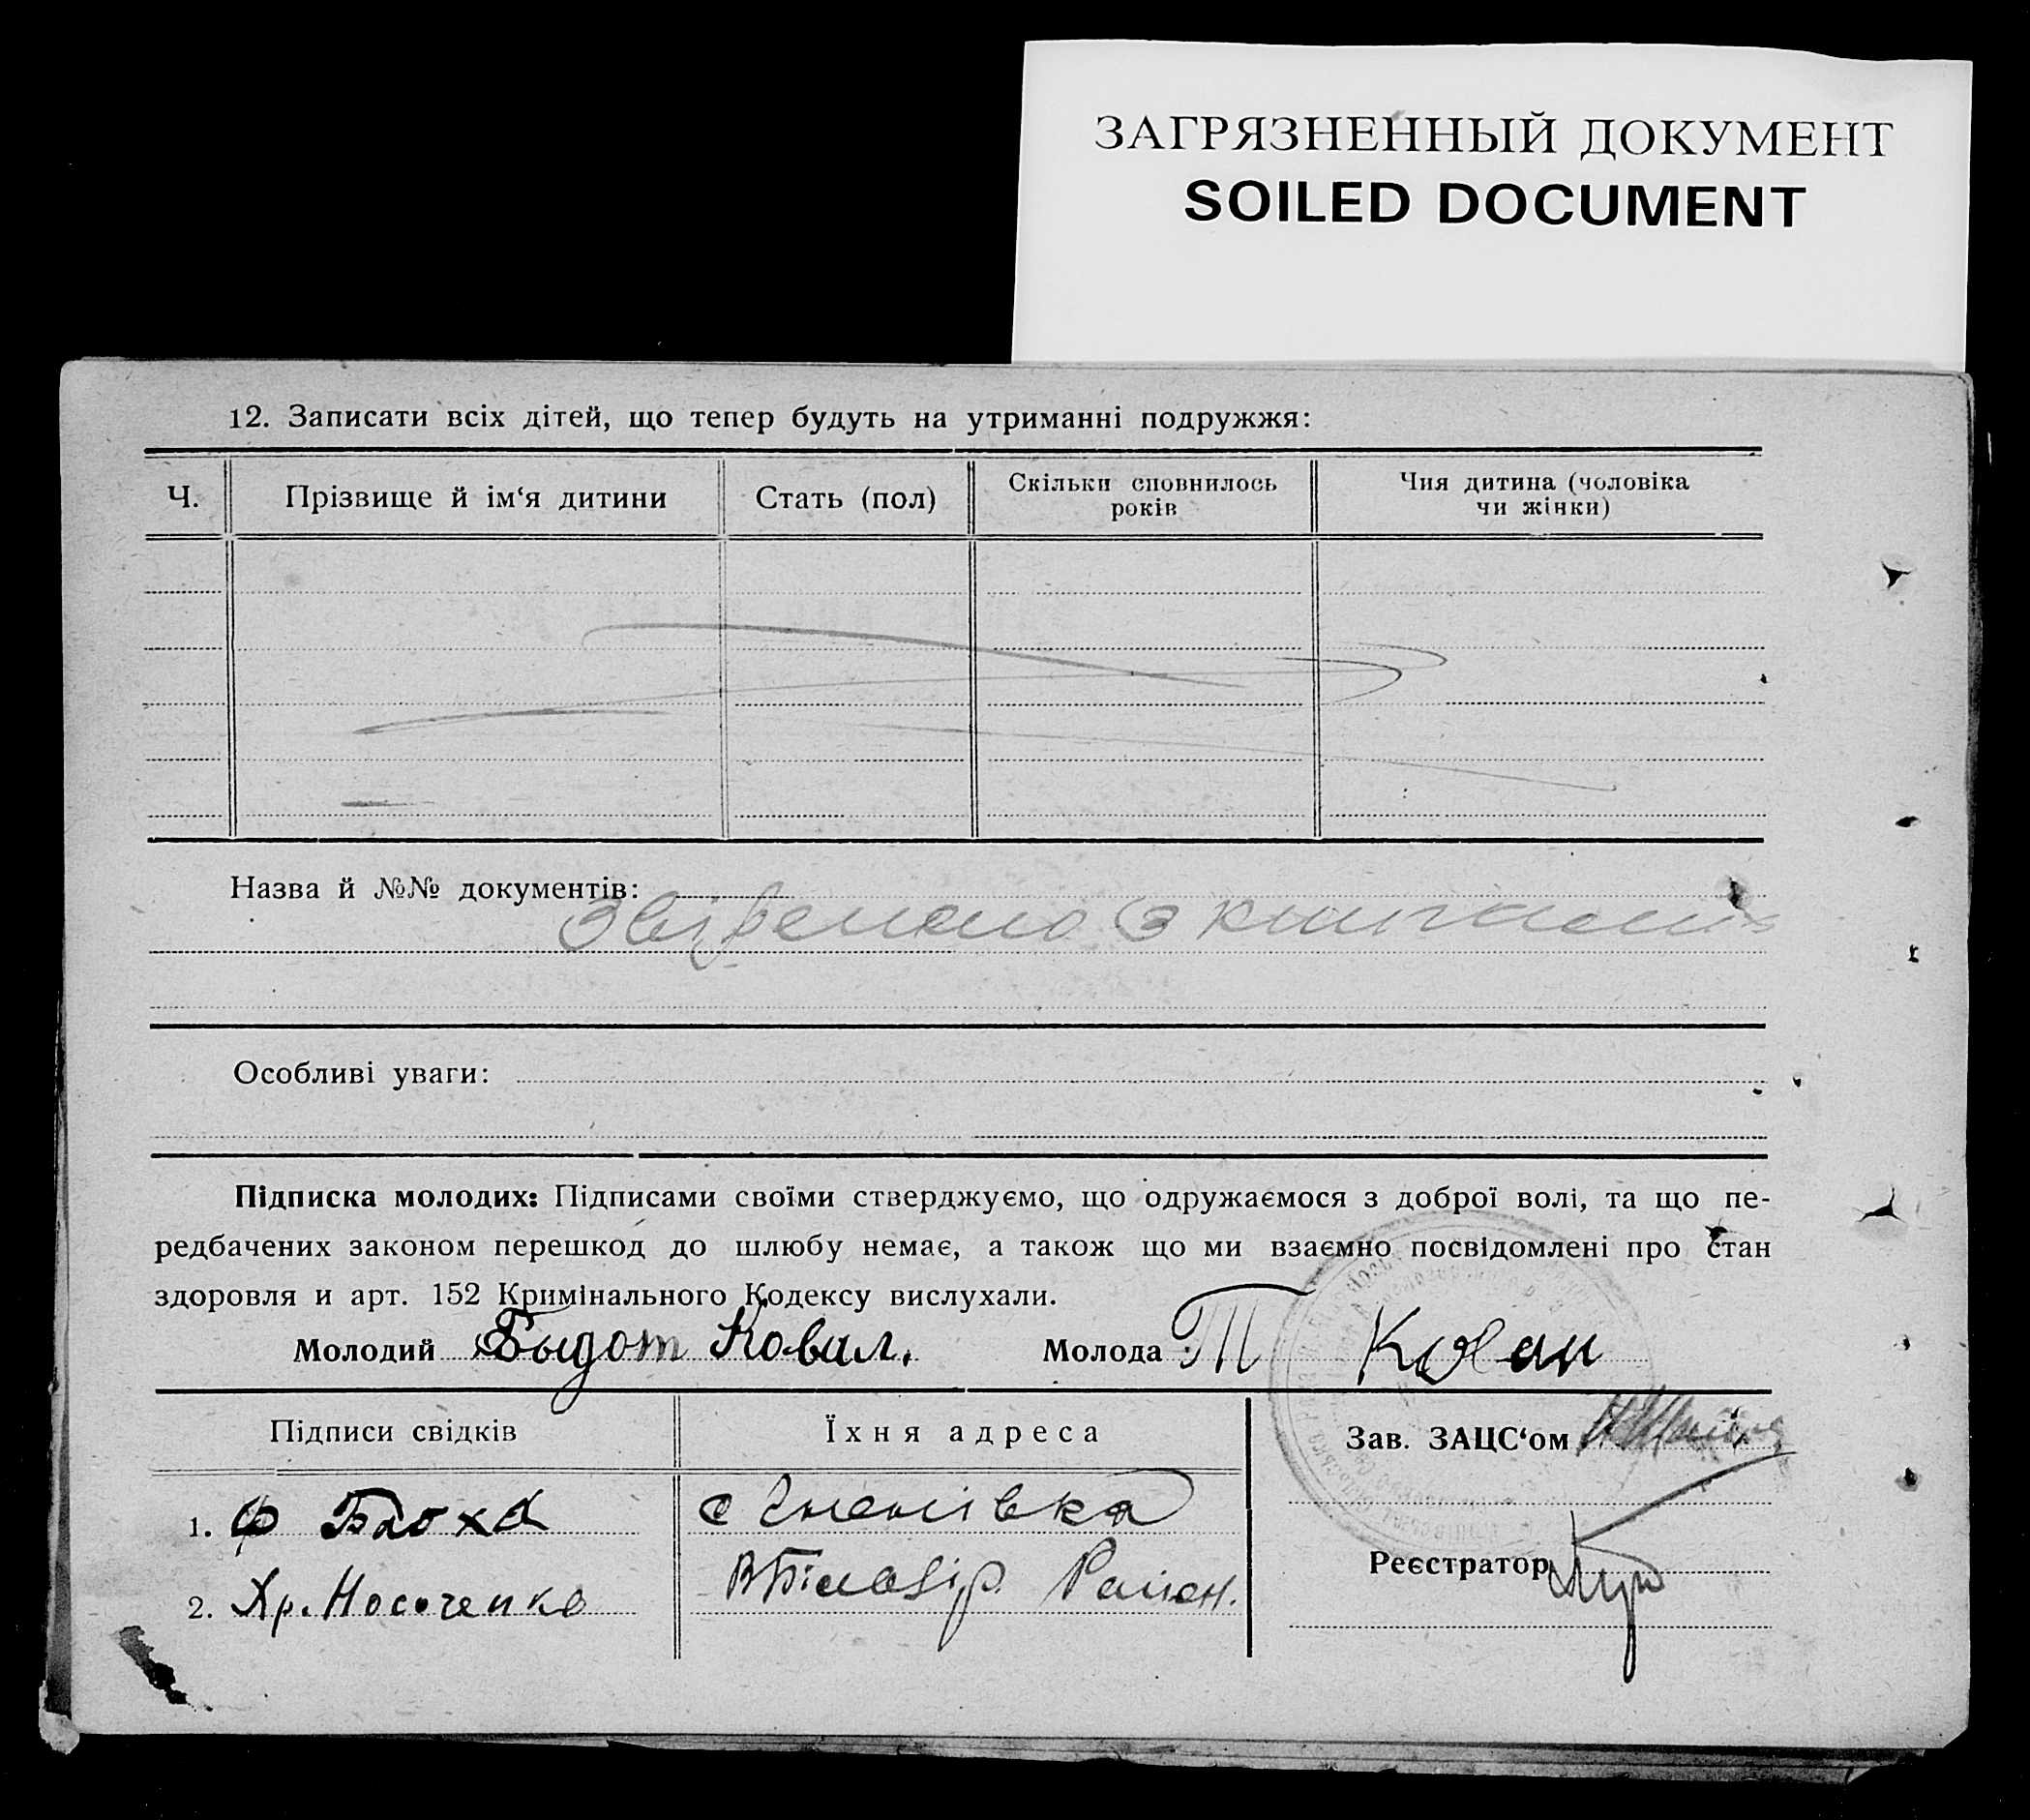 ЗАГРЯЗНЕННЫЙ ДОКУМЕНТ
SOILED DOCUMENT
12. Записати всіх дітей, що тепер будуть на утриманні подружжя:
Ч. Прізвище й ім‘я дитини Стать (пол) Скільки сповнилось років Чия дитина (чоловіка чи жінки)
Назва й №№ документів:
з книгами
Особливі уваги:
Підписка молодих: Підписами своїми стверджуємо, що одружаємося з доброї волі, та що пе-
редбачених законом перешкод до шлюбу немає, а також що ми взаємно посвідомлені про стан
здоровля и арт. 152 Кримінального Кодексу вислухали.
Молодий Ковал. Молода Т
Підписи свідків Їхня адреса Зав. ЗАЦС‘ом
1. Ф Блоха с
Реєстратор
2. Хр. Носоченко Район.